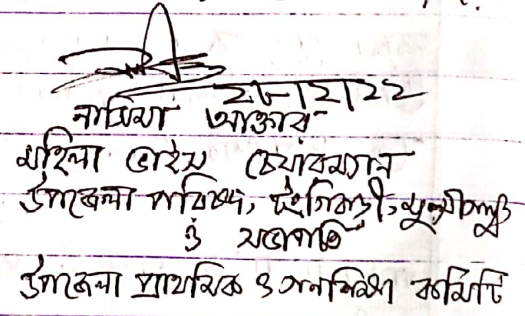 ২৮/২/২২
নাসিমা আক্তার
মহিলা ভাইস চেয়ারম্যান
উপজেলা পরিষদ, টংগিবাড়ী, মুন্সীগঞ্জ
ও সভাপতি
উপজেলা প্রাথমিক ও গনশিক্ষা কমিটি